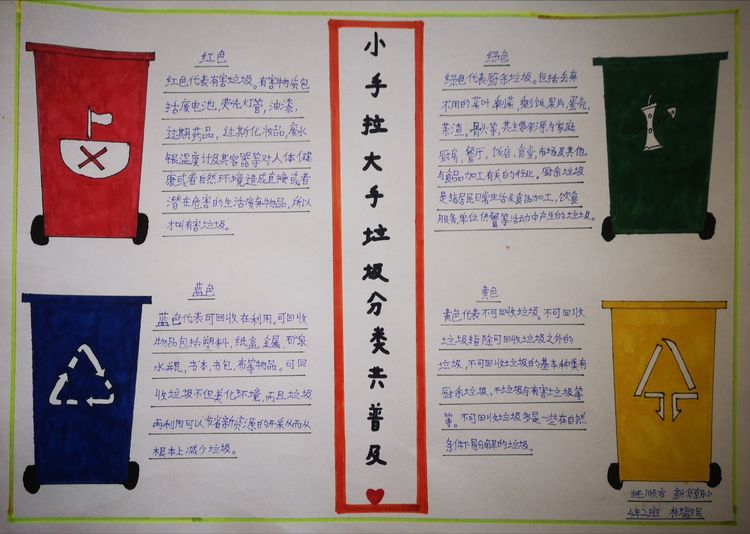 小手拉大手垃圾分类共普及
红色
红色代表有害垃圾。有害物质包
括废电池,荧光灯管,油漆,
过期药品,过期化妆品,废水
银温度计及其容器等对人体健
康或者自然环境造成直接或者
潜在危害的生活废弃物品,所以
才叫有害垃圾。
绿色
绿色代表厨余垃圾。包括丢弃
不用的菜叶,剩菜,剩饭,果片,蛋壳,
茶渣,骨头等,其主要来源为家庭
厨房,餐厅,饭店,食堂,市场及其他
与食品加工有关的行业。厨余垃圾
是指居民日常生活及食品加工,饮食
服务,单位供餐等活动中产生的垃圾。
蓝色
蓝色代表可回收在利用。可回收
物品包括塑料,纸盒,金属,矿泉
水瓶,书本,书包,布等物品。可回
收垃圾不但美化环境,而且垃圾
再利用可以节省新资源的开采从而从
根本上减少垃圾。
黄色
黄色代表不可回收垃圾,不可回收
垃圾指除可回收垃圾之外的
垃圾,不可回收垃圾的基本种类有
厨余垃圾,干垃圾与有害垃圾等
等。不可回收垃圾多是一些在自然
条件下易分解的垃圾。
抚顺市 新华朝小
4年2班